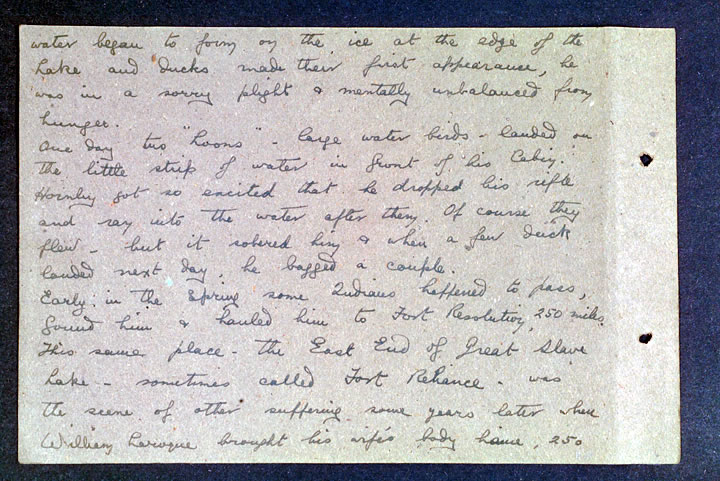 water began to form on the ice at the edge of the
Lake and ducks made their first appearance, he
was in a sorry plight & mentally unbalanced from
hunger.
One day two "Loons" - large water birds - landed on
the little strip of water in front of his Cabin.
Hornby got so excited that he dropped his rifle
and ran into the water after them. Of course they
flew - but it sobered him & when a few duck
landed next day, he bagged a couple.
Early in the Spring some Indians happened to pass,
found him & hauled him to Fort Resolution, 250 miles.
This same place - the East End of Great Slave
Lake - sometimes called Fort Reliance - was
the scene of other suffering some years later when
William Laroque brought his wife's body home, 250